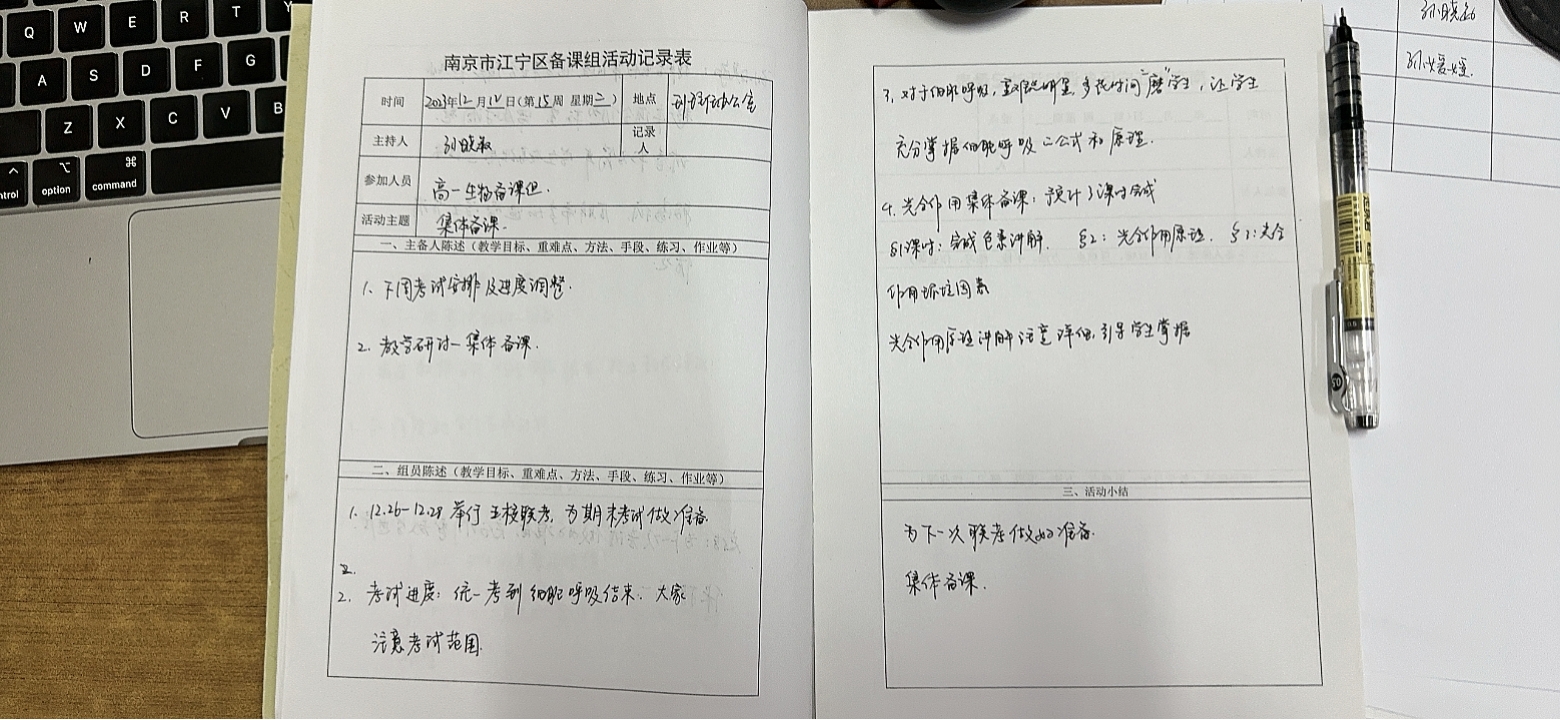 Q W E R T Y
A S D F G
Z X C V B
⌥ ⌘
option command
南京市江宁区备课组活动记录表
时间 2023年12月12日(第15周 星期二) 地点
主持人 孙晓 记录人
参加人员 高一生物备课组.
活动主题 集体备课.
一、主备人陈述(教学目标、重难点、方法、手段、练习、作业等)
1. 下周考试安排及进度调整.
2. 教学研讨一集体备课.
二、组员陈述(教学目标、重难点、方法、手段、练习、作业等)
1. 12.26-12.28 举行五校联考, 为期末考试做准备.
2.
2. 考试进度: 统一考到细胞呼吸结束. 大家
注意考试范围.
3. 对于细胞呼吸, 多花时间"磨"学生, 让学生
充分掌握细胞呼吸的公式和原理.
4. 光合作用集体备课: 预计3课时完成
§1课时: 完成色素讲解. §2: 光合作用原理. §3: 光合
作用影响因素
光合作用原理讲解注意详细, 引导学生掌握
三、活动小结
为下一次联考做好准备.
集体备课.